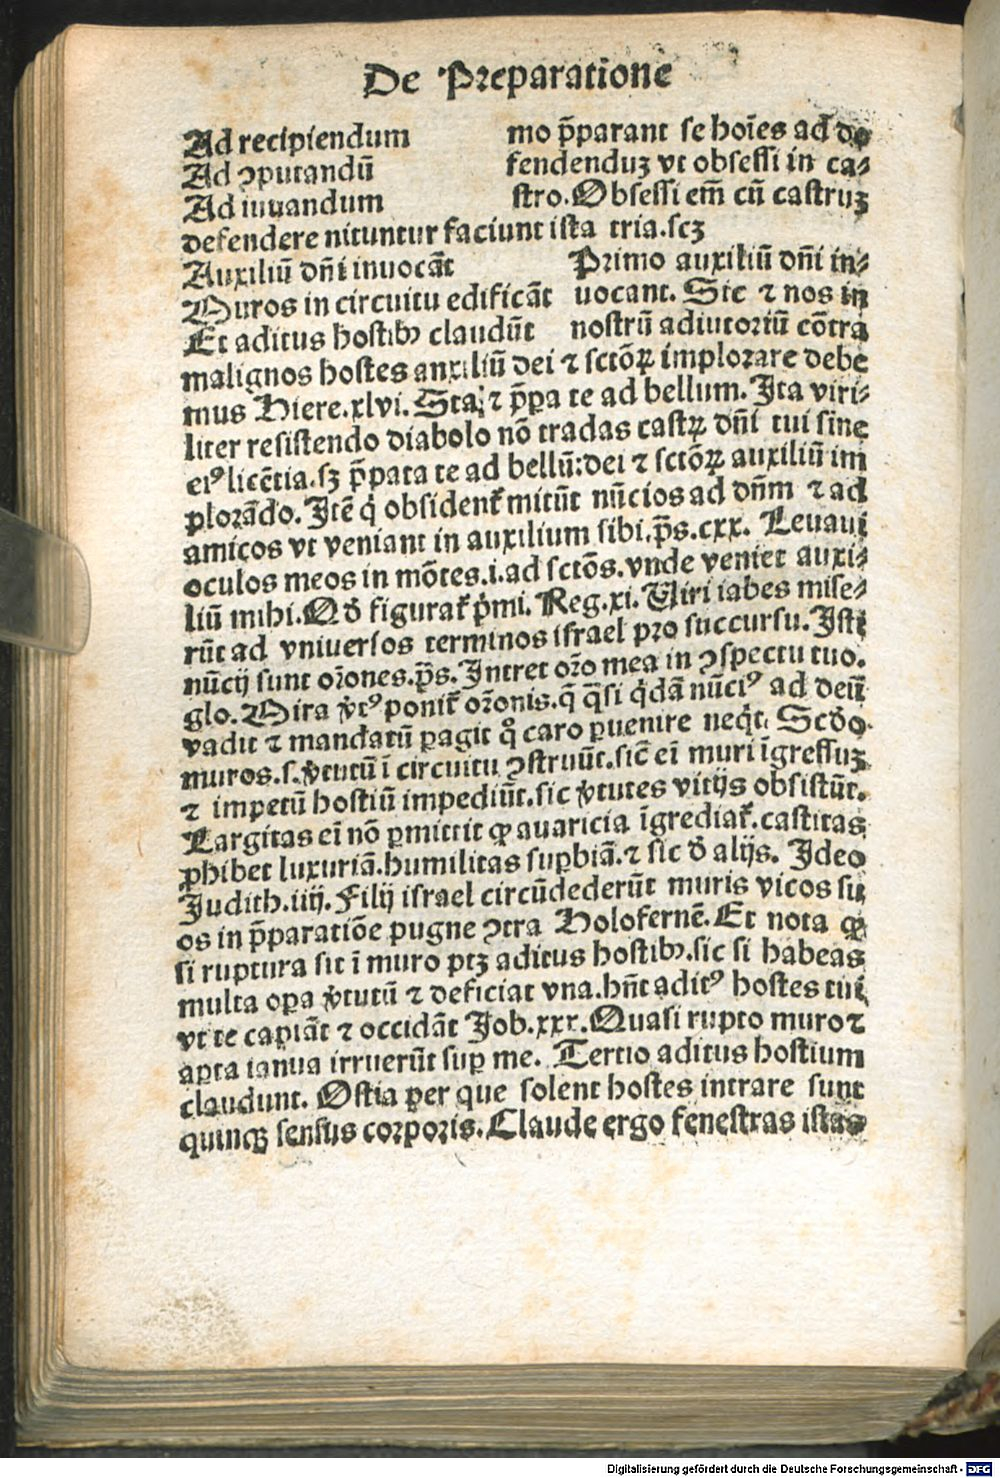 De Preparatione
Ad recipiendum mo p̄parant se hoīes ad de
Ad ꝯputandū fendenduꝫ vt obsessi in ca⸗
Ad iuuandum stro. Obsessi em̄ cū castruꝫ
defendere nituntur faciunt ista tria. scꝫ
Auxiliū dn̄i inuocāt Primo auxiliū dn̄i in⸗
Muros in circuitu edificāt uocant. Sic ⁊ nos in
Et aditus hostibꝰ claudūt nostrū adiutoriū cōtra
malignos hostes auxiliū dei ⁊ sctōꝝ implorare debe
mus Hiere. xlvi. Sta ⁊ p̄pa te ad bellum. Ita viri⸗
liter resistendo diabolo nō tradas castꝝ dn̄i tui sine
eiꝰ licētia. sꝫ p̄pata te ad bellū: dei ⁊ sctōꝝ auxiliū im
plorādo. Itē q̇ obsident᷑ mitūt nūcios ad dn̄m ⁊ ad
amicos vt veniant in auxilium sibi. p̄s. cxx. Leuaui
oculos meos in mōtes. i. ad sctōs. vnde veniet auxi⸗
liū mihi. Qd̓ figurat᷑ p̓mi. Reg. xi. Viri iabes mise⸗
rūt ad vniuersos terminos israel pro succursu. Isti
nūcij sunt orōnes. p̄s. Intret orō mea in ꝯspectu tuo.
glo. Mira v̓tꝰ ponit᷑ orōnis. q̄ q̄si q̇dā nūciꝰ ad deū
vadit ⁊ mandatū ꝑagit qͦ caro ꝑuenire neq̇t. Scd̓o
muros. s. v̓tutū ī circuitu ꝯstruūt. sic̄ eī muri īgressuꝫ
⁊ impetū hostiū impediūt. sic v̓tutes vitijs obsistūt.
Largitas eī nō ꝑmittit ꝙ auaricia īgrediat᷑. castitas
ꝓhibet luxuriā. humilitas suꝑbiā. ⁊ sic d̓ alijs. Ideo
Judith. iiij. Filij israel circūdederūt muris vicos su
os in p̄paratiōe pugne ꝯtra Holofernē. Et nota ꝙ
si ruptura sit ī muro ptꝫ aditus hostibꝰ. sic si habeas
multa oꝑa v̓tutū ⁊ deficiat vna. hn̄t aditꝰ hostes tui
vt te capiāt ⁊ occidāt Job. xxx. Quasi rupto muro ⁊
aꝑta ianua irruerūt suꝑ me. Tertio aditus hostium
claudunt. Ostia per que solent hostes intrare sunt
quinqꝫ sensus corporis. Claude ergo fenestras istas
Digitalisierung gefördert durch die Deutsche Forschungsgemeinschaft - DFG